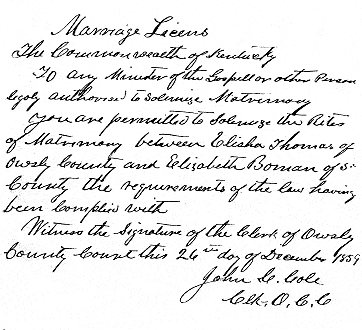 Marriage Licens
The Commonwealth of Kentucky
To any Minister of the Gospell or other Person
legaly authorised to Solemnize Matrimony
You are permitted to Solemnize the Rites
of Matrimony between Elisha Thomas of
Owsly County and Elizabeth Boman of s-
County the requirements of the law having
been Complid with
Witness the Signature of the Clerk of Owsly
County Court this 26th day of December 1859
John G. Cole
Clk. O. C. C